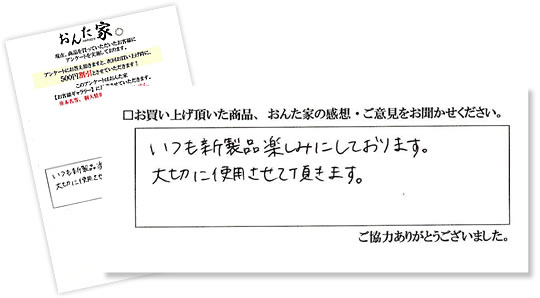 おんた家。
現在、商品を買っていただいたお客様に
アンケートを実施しております。
アンケートにお答え頂きますと、次回お買い上げ時に、
500円割引とさせていただきます！
このアンケートはおんた家
【お客様ギャラリー】に
いつも新製品楽
大切に使用させて
□お買い上げ頂いた商品、おんた家の感想・ご意見をお聞かせください。
いつも新製品楽しみにしております。
大切に使用させて頂きます。
ご協力ありがとうございました。